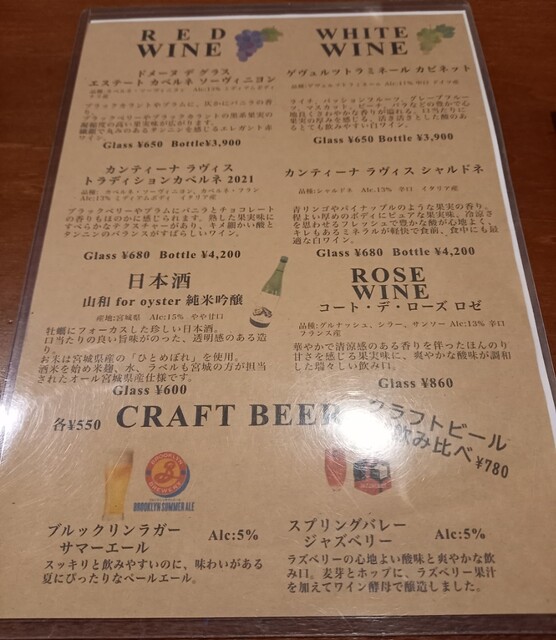 RED
WINE
ドメーヌ デ グラス
エステート カベルネ ソーヴィニヨン
ブラックカラントやプラムに、仄かにバニラの香り。
ブラックベリーやブラックカラントの黒系果実の
Glass ¥650 Bottle¥3,900
カンティーナ ラヴィス
トラディションカベルネ 2021
品種: カベルネ・ソーヴィニヨン、カベルネ・フラン
Alc:13% ミディアムボディ イタリア産
ブラックベリーやプラムにバニラとチョコレート
の香りもほのかに感じられます。熟した果実味に
すべらかなテクスチャーがあり、キメ細かい酸と
タンニンのバランスがすばらしいワイン。
Glass ¥680 Bottle ¥4,200
日本酒
山和 for oyster 純米吟醸
産地:宮城県 Alc:15% やや甘口
牡蠣にフォーカスした珍しい日本酒。
口当たりの良い旨味がのった、透明感のある造
り。
お米は宮城県産の「ひとめぼれ」を使用。
酒米を始め米麹、水、ラベルも宮城の方が担当
されたオール宮城県産仕様です。
Glass ¥600
WHITE
WINE
ゲヴュルツトラミネール カビネット
ライチ、パッションフルーツ、グレープフルー
ツ、マスカット、ピーチ、バラなどの豊かで心
地良くさわやかな香りが溢れる。口当たりに
果実の厚みを感じる、活き活きとした酸のあ
るとても飲みやすい白ワイン。
Glass ¥650 Bottle ¥3,900
カンティーナ ラヴィス シャルドネ
品種:シャルドネ Alc.13% 辛口 イタリア産
青リンゴやパイナップルのような果実の香り。
程よい厚めのボディにピュアな果実味、冷涼さ
を思わせるフレッシュで豊かな酸が心地よく、
キレもあるミネラルが軽快で食前、食中にも最
適な白ワイン。
Glass ¥680 Bottle ¥4,200
ROSE
WINE
コート・デ・ローズ ロゼ
品種:グルナッシュ、シラー、サンソー Alc:13% 辛口
フランス産
華やかで清涼感のある香りを伴ったほんのり
甘さを感じる果実味に、爽やかな酸味が調和
した瑞々しい飲み口。
Glass ¥860
各¥550 CRAFT BEER
クラフトビール
飲み比べ ¥780
BROOKLYN
BREWERY
BROOKLYN SUMMER ALE
ブルックリンラガー
サマーエール
Alc:5%
スッキリと飲みやすいのに、味わいがある
夏にぴったりなペールエール。
スプリングバレー
ジャズベリー
Alc:5%
ラズベリーの心地よい酸味と爽やかな飲
み口。麦芽とホップに、ラズベリー果汁
を加えてワイン酵母で醸造しました。